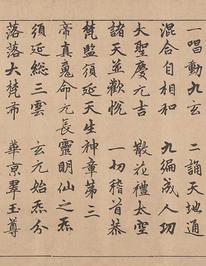 一唱動九玄 二誦天地通
混合自相和 九編成人功
大聖慶元吉 散花禮太空
諸天並歡悅 一切稽首恭
梵監須延天生神章第三
帝真魂命元長靈明仙之炁
須延總三雲 玄元始炁分
落落大梵布 華京翠玉尊